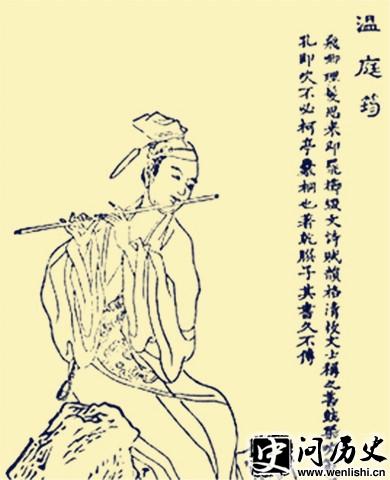 温庭筠
飛卿理髮思來即罷櫛綴文詩賦韻格清拔文士稱之善鼓琴
孔即吹不必柯亭爨桐也著乾𦠆子其書久不傳
史 问历史
www.wenlishi.cn